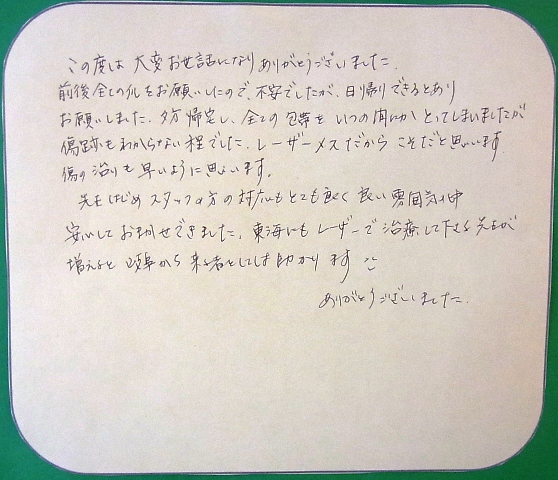 この度は 大変お世話になり ありがとうございました。
前後全ての爪をお願いしたので、不安でしたが、日帰りできるとあり
お願いしました。夕方帰宅し、全ての包帯をいつの間にかとってしまいましたが
傷跡もわからない程でした。レーザーメスだからこそだと思います
傷の治りも早いように思います。
先生はじめスタッフの方の対応もとても良く良い雰囲気の中
安心しておまかせできました。東海にもレーザーで治療して下さる先生が
増えると岐阜から来る者としては助かります
ありがとうございました。